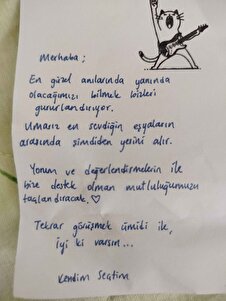 Merhaba ;
En güzel anılarında yanında
olacağımızı bilmek bizleri
gururlandırıyor.
Umarız en sevdiğin eşyaların
arasında şimdiden yerini alır.
Yorum ve değerlendirmelerin ile
bize destek olman mutluluğumuzu
taçlandıracak.♡
Tekrar görüşmek ümidi ile,
İyi ki varsın...
Kendim Seçtim